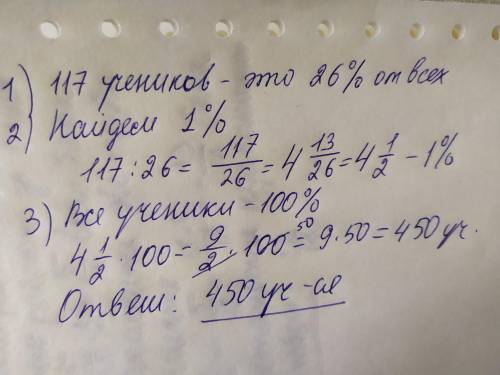 1) 117 учеников - это 26% от всех
2) Найдем 1%
117 : 26 = 117/26 = 4 13/26 = 4 1/2 - 1%
3) Все ученики - 100%
4 1/2 · 100 = 9/2 · 100 50 = 9 · 50 = 450 уч.
Ответ: 450 уч-ся